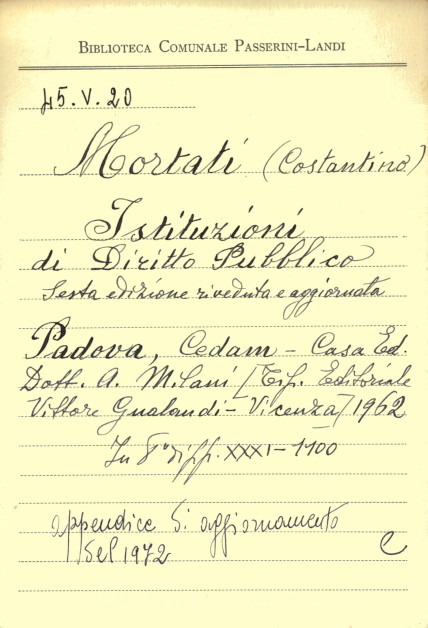 BIBLIOTECA COMUNALE PASSERINI-LANDI
45.V.20
Mortati (Costantino)
Istituzioni
di Diritto Pubblico
Sesta edizione riveduta e aggiornata
Padova, Cedam - Casa Ed.
Dott. A. Milani [Tip. Editoriale
Vittore Gualandi - Vicenza] 1962
In 8° di pp. XXXI-1100
appendice di aggiornamento
del 1972
e